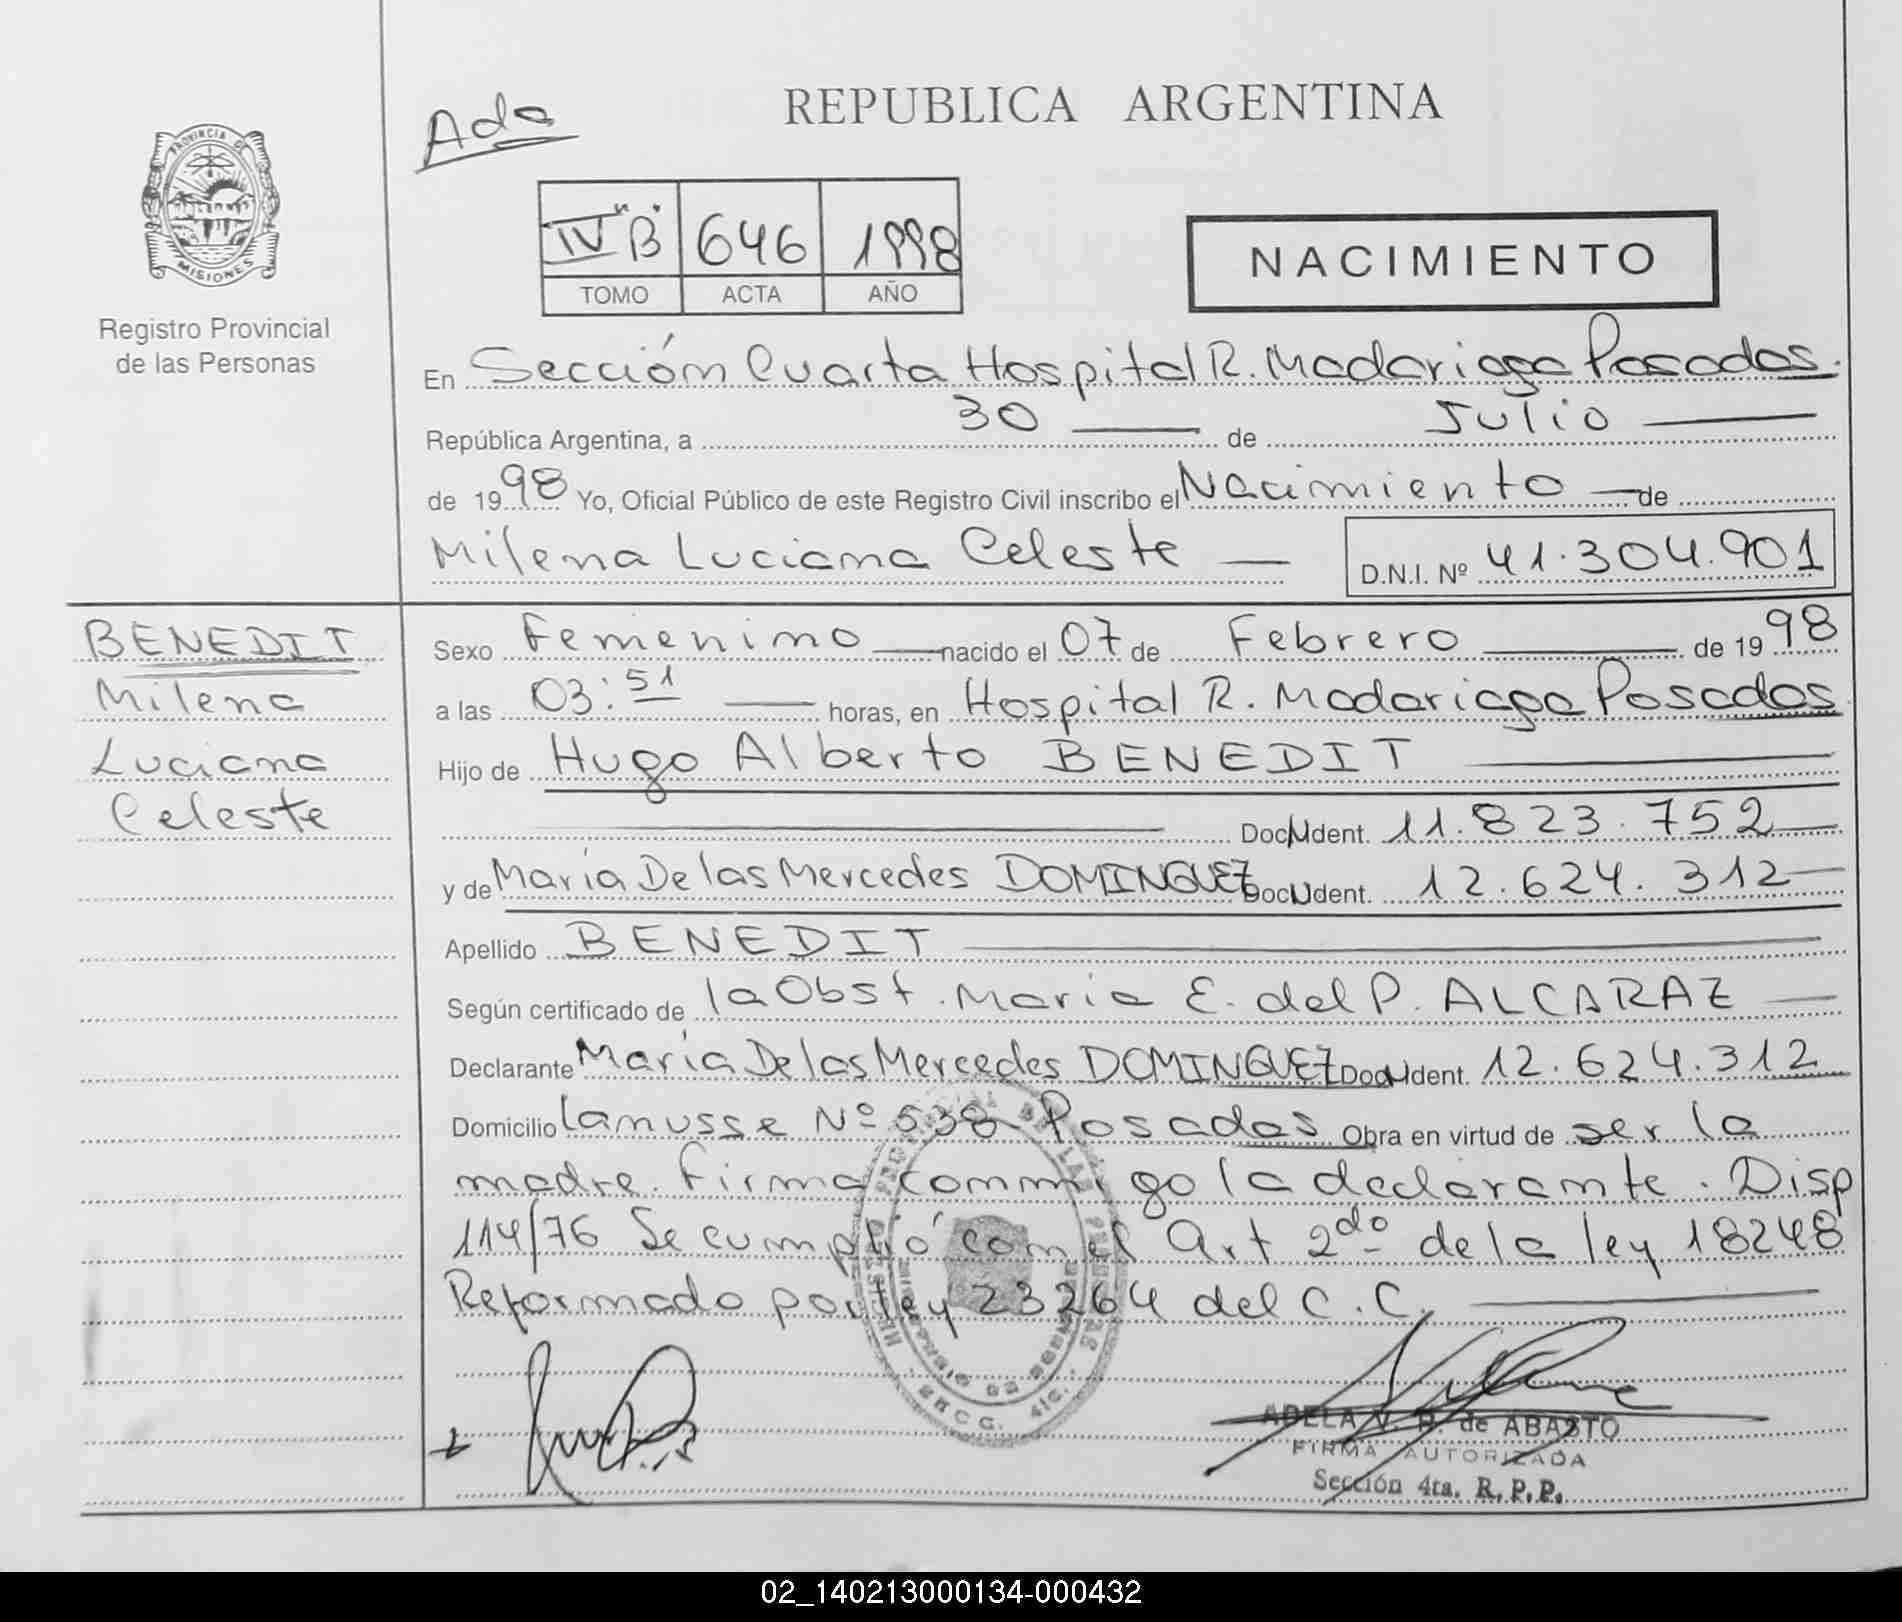 REPUBLICA ARGENTINA
Ada
PROVINCIA DE
MISIONES
Registro Provincial
de las Personas
IV "B" 646 1998
TOMO ACTA AÑO
NACIMIENTO
En Sección Cuarta Hospital R. Madariaga Posadas.
República Argentina, a 30 de Julio
de 1998 Yo, Oficial Público de este Registro Civil inscribo el Nacimiento de
Milena Luciana Celeste D.N.I. Nº 41.304.901
BENEDIT
Milena
Luciana
Celeste
Sexo Femenino nacido el 07 de Febrero de 1998
a las 03:51 horas, en Hospital R. Madariaga Posadas
Hijo de Hugo Alberto BENEDIT
Doc. Ident. 11.823.752
y de María De las Mercedes DOMINGUEZ Doc. Ident. 12.624.312
Apellido BENEDIT
Según certificado de la Obst. Maria E. del P. ALCARAZ
Declarante María De las Mercedes DOMINGUEZ Doc. Ident. 12.624.312
Domicilio Lanusse Nº 538 Posadas Obra en virtud de ser la
madre. Firma conmigo la declarante. Disp
114/76 Se cumplió con el Art 2do de la ley 18248
Reformado por ley 23264 del C.C.
ADELA V. P. de ABASTO
FIRMA AUTORIZADA
Sección 4ta. R.P.P.
02_140213000134-000432